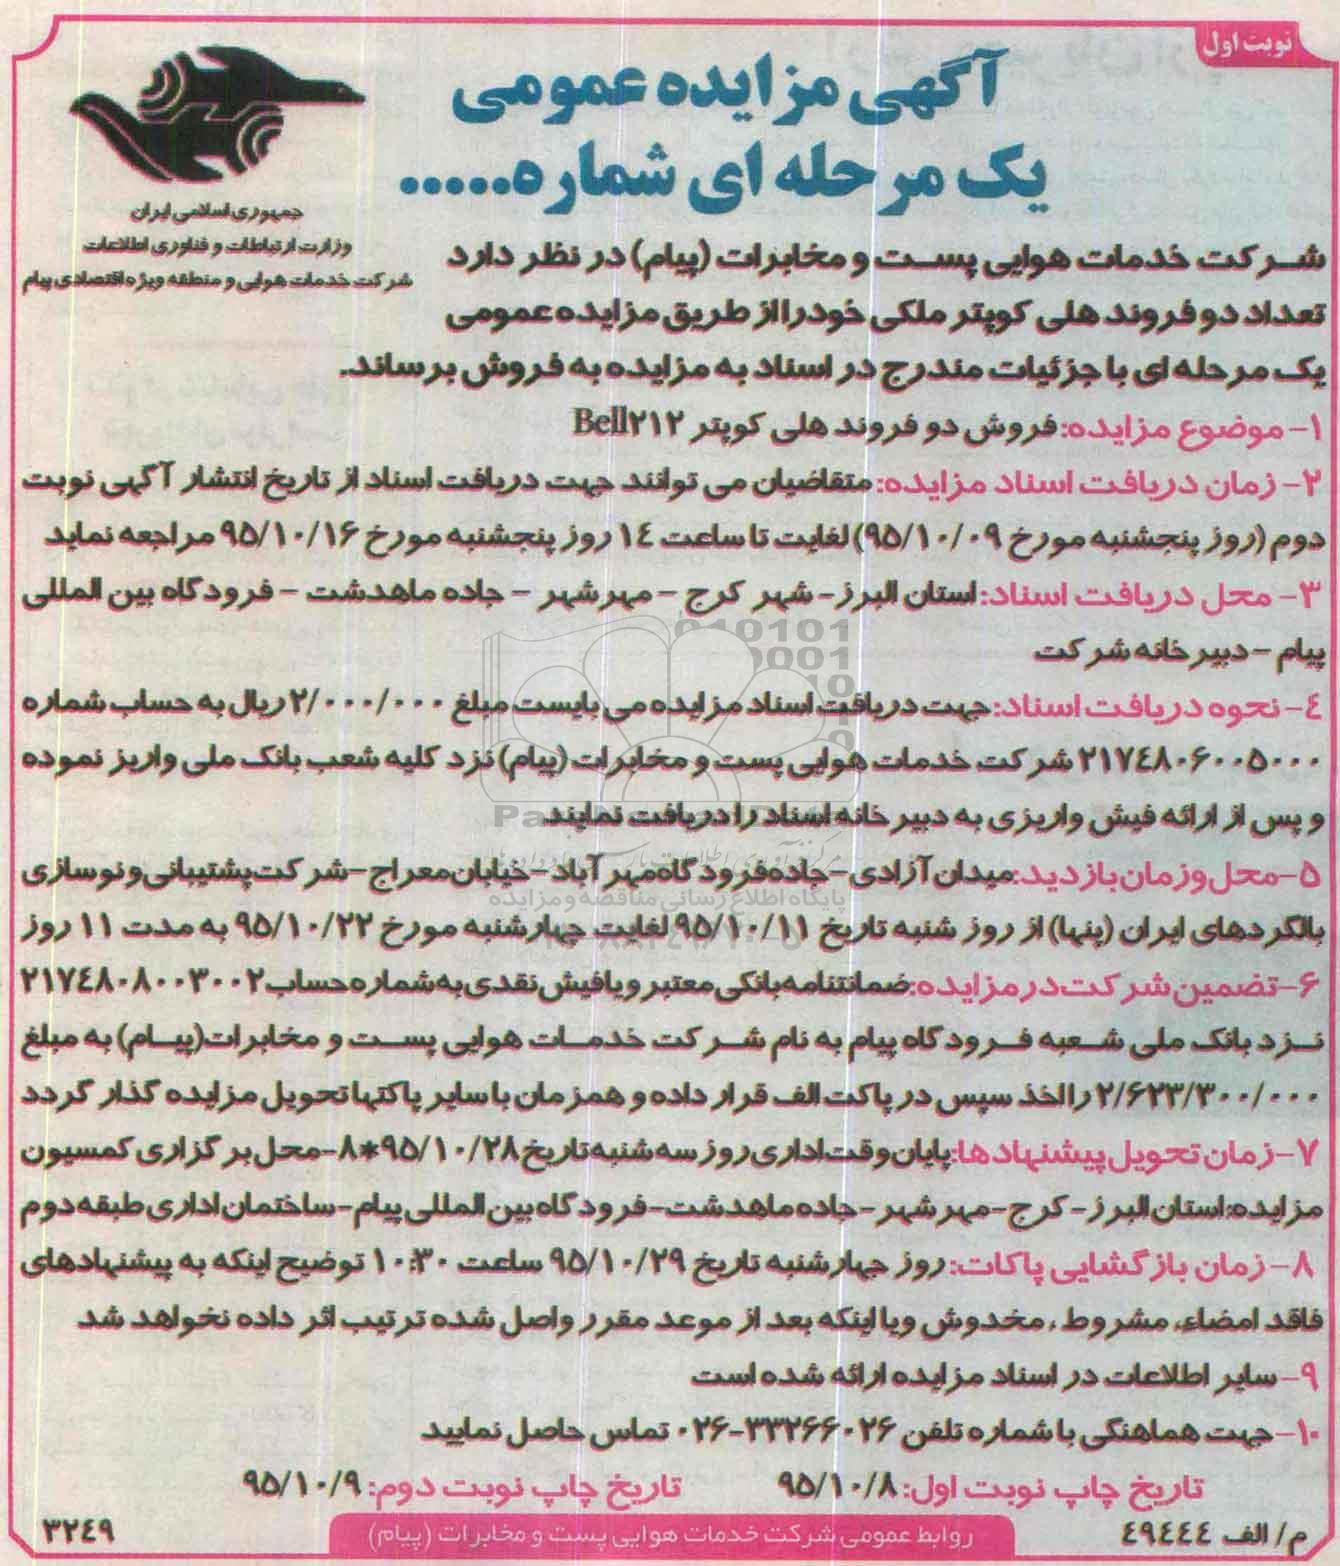 نوبت اول
آگهی مزایده عمومی
یک مرحله ای شماره.....
جمهوری اسلامی ایران
وزارت ارتباطات و فناوری اطلاعات
شرکت خدمات هوایی و منطقه ویژه اقتصادی پیام
شرکت خدمات هوایی پست و مخابرات (پیام) در نظر دارد
تعداد دو فروند هلی کوپتر ملکی خود را از طریق مزایده عمومی
یک مرحله ای با جزئیات مندرج در اسناد به مزایده به فروش برساند.
۱- موضوع مزایده: فروش دو فروند هلی کوپتر Bell۲۱۲
۲- زمان دریافت اسناد مزایده: متقاضیان می توانند جهت دریافت اسناد از تاریخ انتشار آگهی نوبت
دوم (روز پنجشنبه مورخ ۹۵/۱۰/۰۹) لغایت تا ساعت ۱٤ روز پنجشنبه مورخ ۹۵/۱۰/۱۶ مراجعه نماید
۳- محل دریافت اسناد: استان البرز- شهر کرج - مهرشهر - جاده ماهدشت - فرودگاه بین المللی
پیام - دبیرخانه شرکت
٤- نحوه دریافت اسناد: جهت دریافت اسناد مزایده می بایست مبلغ ۲/۰۰۰/۰۰۰ ریال به حساب شماره
۲۱۷٤۸۰۶۰۰۵۰۰۰ شرکت خدمات هوایی پست و مخابرات (پیام) نزد کلیه شعب بانک ملی واریز نموده
و پس از ارائه فیش واریزی به دبیرخانه اسناد را دریافت نمایند.
پایگاه اطلاع رسانی مناقصه و مزایده
۵-محل و زمان بازدید: میدان آزادی-جاده فرودگاه مهرآباد-خیابان معراج-شرکت پشتیبانی و نوسازی
بالگردهای ایران (پنها) از روز شنبه تاریخ ۹۵/۱۰/۱۱ لغایت چهارشنبه مورخ ۹۵/۱۰/۲۲ به مدت ۱۱ روز
۶-تضمین شرکت در مزایده: ضمانتنامه بانکی معتبر و یا فیش نقدی به شماره حساب ۲۱۷٤۸۰۸۰۰۳۰۰۲
نزد بانک ملی شعبه فرودگاه پیام به نام شرکت خدمات هوایی پست و مخابرات(پیام) به مبلغ
۲/۶۲۳/۳۰۰/۰۰۰ را اخذ سپس در پاکت الف قرار داده و همزمان با سایر پاکتها تحویل مزایده گذار گردد
۷-زمان تحویل پیشنهادها: پایان وقت اداری روز سه شنبه تاریخ ۹۵/۱۰/۲۸*۸-محل برگزاری کمسیون
مزایده: استان البرز-کرج-مهرشهر-جاده ماهدشت-فرودگاه بین المللی پیام-ساختمان اداری طبقه دوم
۸- زمان بازگشایی پاکات: روز چهارشنبه تاریخ ۹۵/۱۰/۲۹ ساعت ۱۰:۳۰ توضیح اینکه به پیشنهادهای
فاقد امضاء، مشروط، مخدوش ویا اینکه بعد از موعد مقرر واصل شده ترتیب اثر داده نخواهد شد
۹-سایر اطلاعات در اسناد مزایده ارائه شده است
۱۰-جهت هماهنگی با شماره تلفن ۳۳۲۶۶۰۲۶-۰۲۶ تماس حاصل نمایید
تاریخ چاپ نوبت اول: ۹۵/۱۰/۸ تاریخ چاپ نوبت دوم: ۹۵/۱۰/۹
م/ الف ٤۹٤٤٤
روابط عمومی شرکت خدمات هوایی پست و مخابرات (پیام)
۳۲٤۹